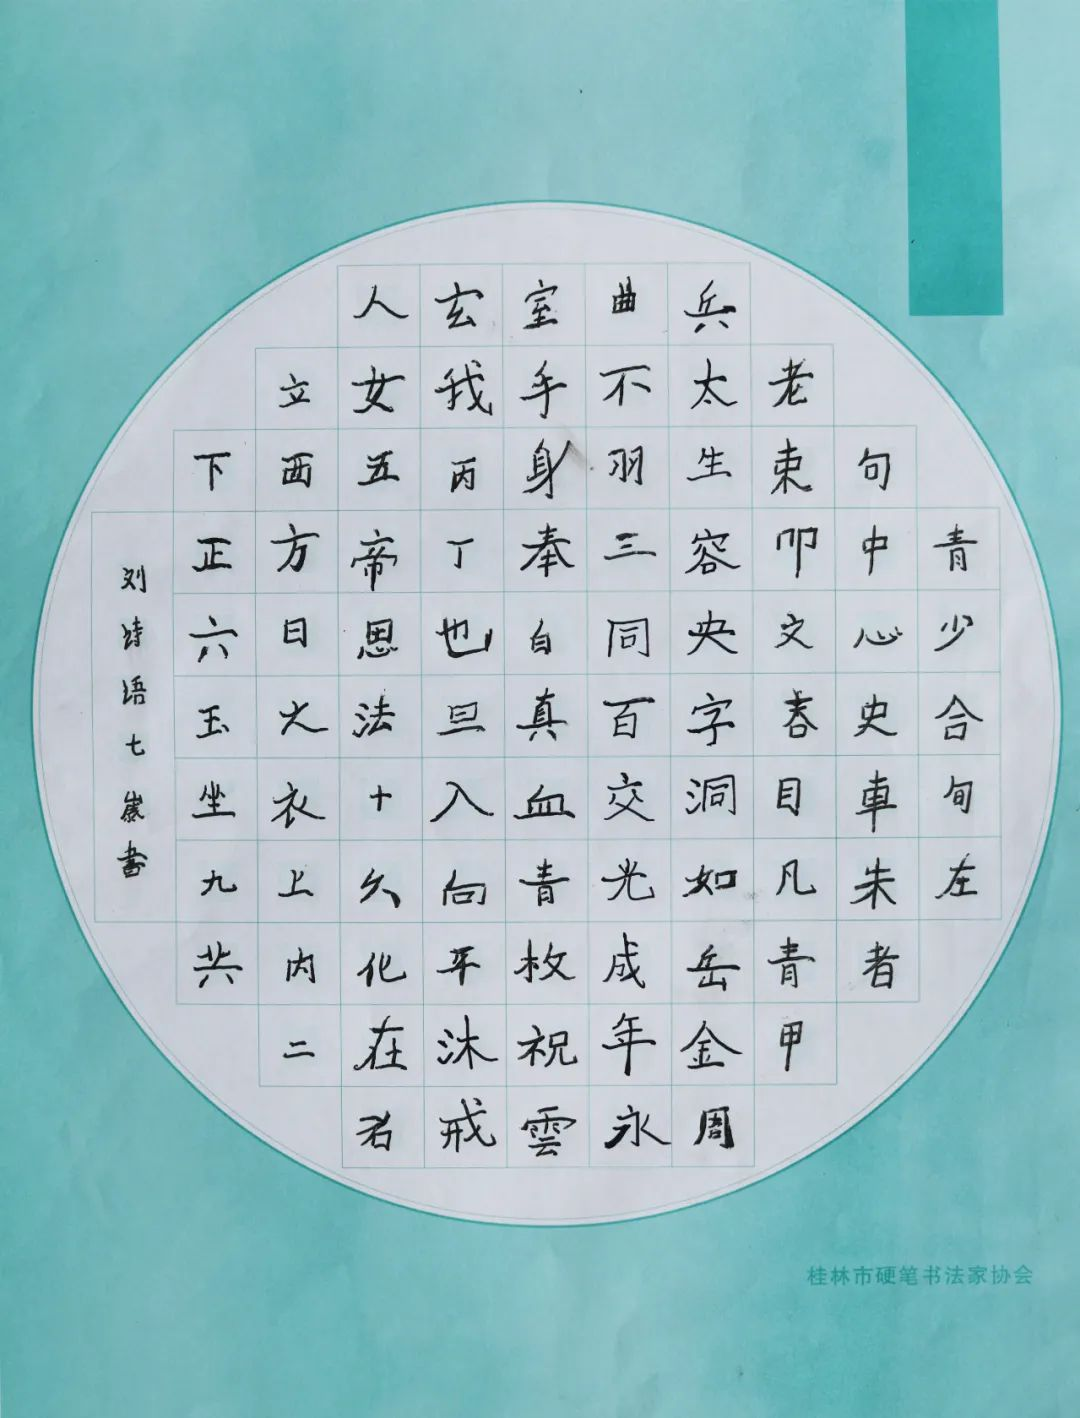 青少合旬左
句中心史車朱者
老束叩文春目凡青甲
兵太生容央字洞如岳金周
曲不羽三同百交光成年永
室手身奉白真血青枚祝雲
玄我丙丁也旦入向平沐戒
人女五帝思法十久化在
立西方日火衣上内二
下正六玉坐九共
刘诗语七歲書
桂林市硬笔书法家协会